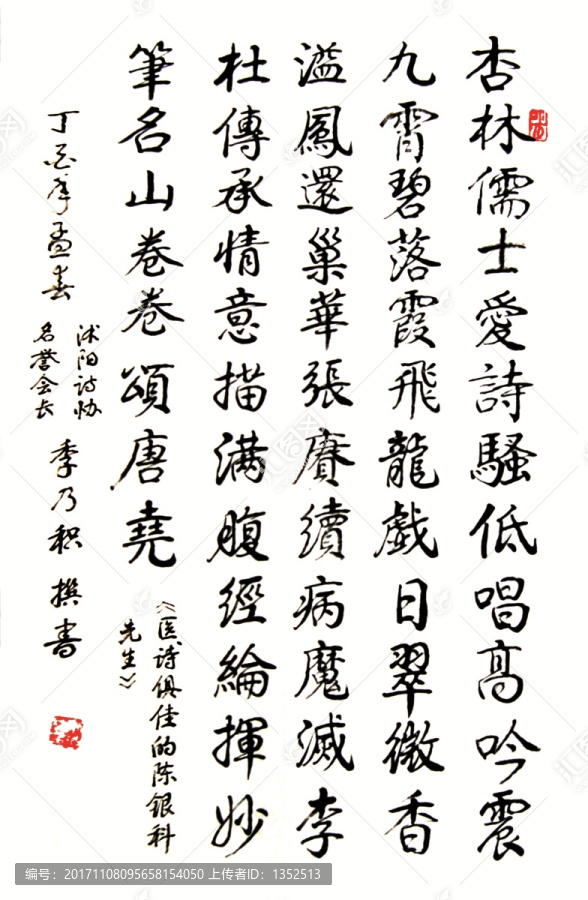 杏林儒士愛詩騷低唱高吟震
九霄碧落霞飛龍戲日翠微香
溢鳳還巢華張賡續病魔滅李
杜傳承情意描满腹經綸揮妙
筆名山卷卷頌唐堯
《医诗俱佳的陈银科
先生》
丁酉年孟春
沭阳诗协
名誉会长
季乃积 撰书
编号：20171108095658154050 上传者ID：1352513